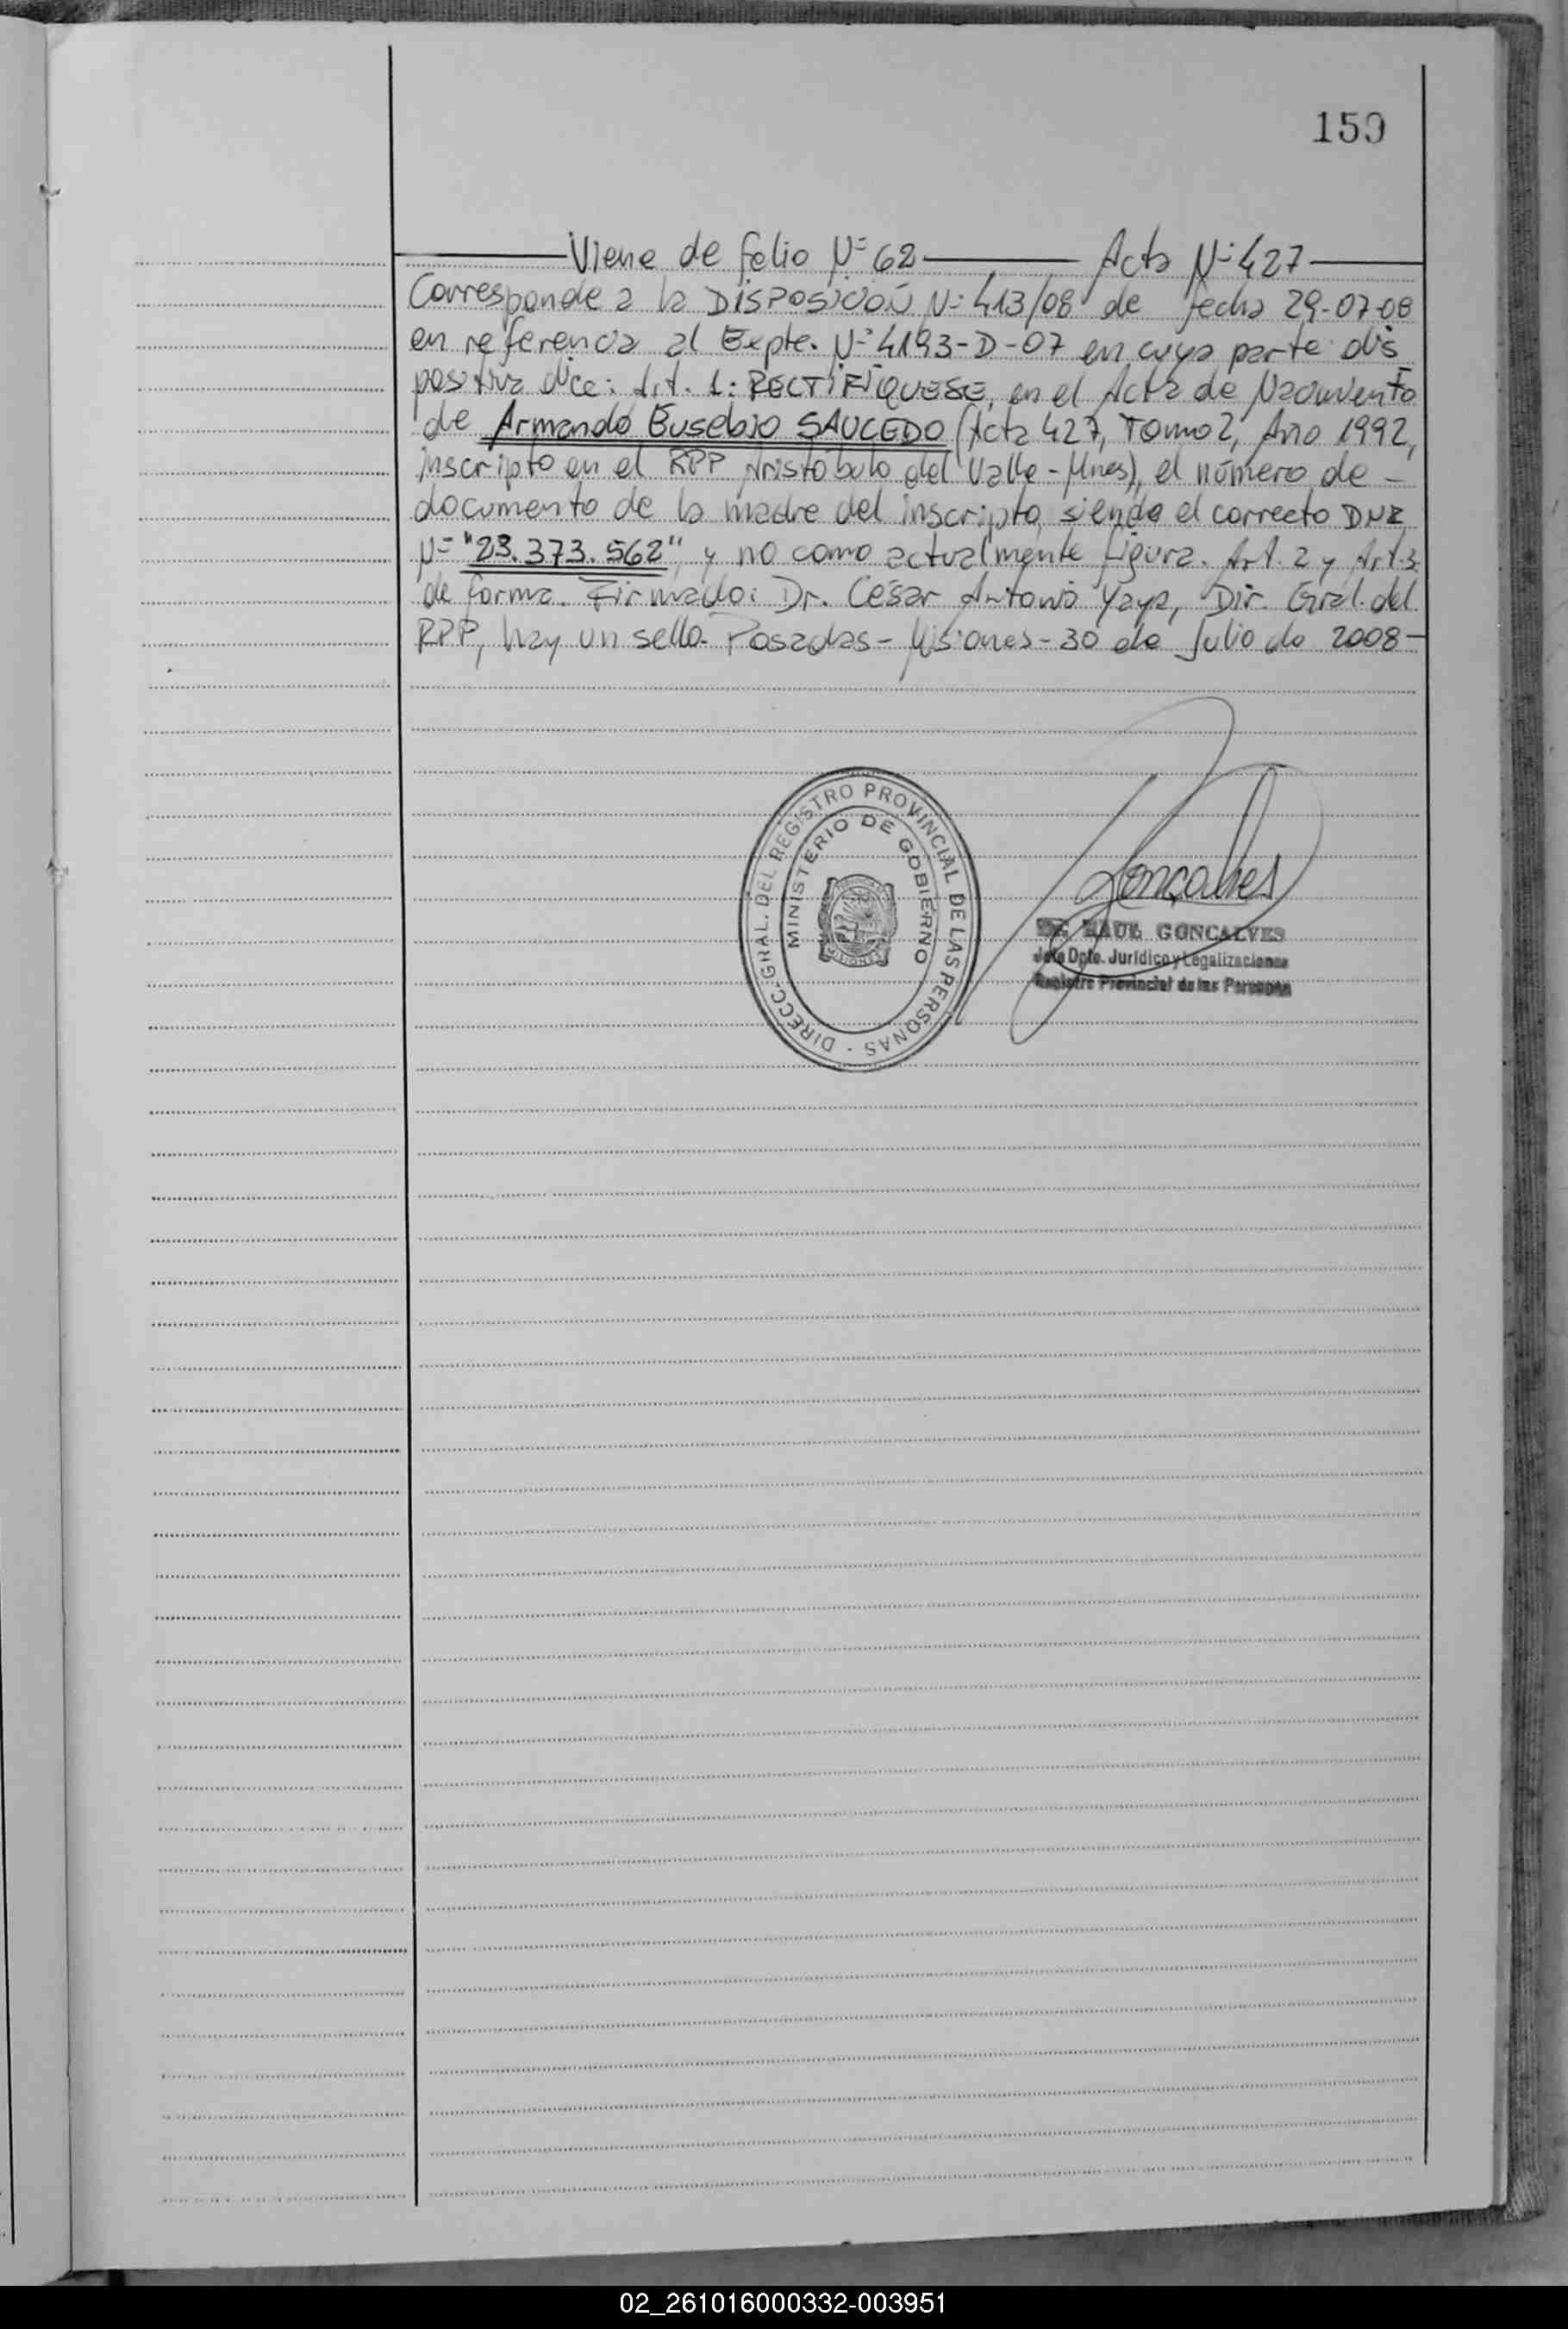 159
Viene de folio Nº 62 Acta Nº 427
Corresponde a la DISPOSICIÓN Nº 413/08 de fecha 29-07-08
en referencia al Expte. Nº 4193-D-07 en cuya parte dis
positiva dice: Art. 1: RECTIFÍQUESE, en el Acta de Nacimiento
de Armando Eusebio SAUCEDO (Acta 427, Tomo 2, Año 1992,
inscripto en el RPP Aristóbulo del Valle - Mnes), el número de -
documento de la madre del inscripto, siendo el correcto DNI
Nº "23.373.562", y no como actualmente figura. Art. 2 y Art. 3
de forma. Firmado: Dr. César Antonio Yaya, Dir. Gral. del
RPP, hay un sello. Posadas - Misiones - 30 de Julio de 2008 -
DIRECC. GRAL. DEL REGISTRO PROVINCIAL DE LAS PERSONAS -
MINISTERIO DE GOBIERNO
MISIONES
Gonçalves
RAUL GONCALVES
Jefe Dpto. Jurídico y Legalizaciones
Registro Provincial de las Personas
02_261016000332-003951